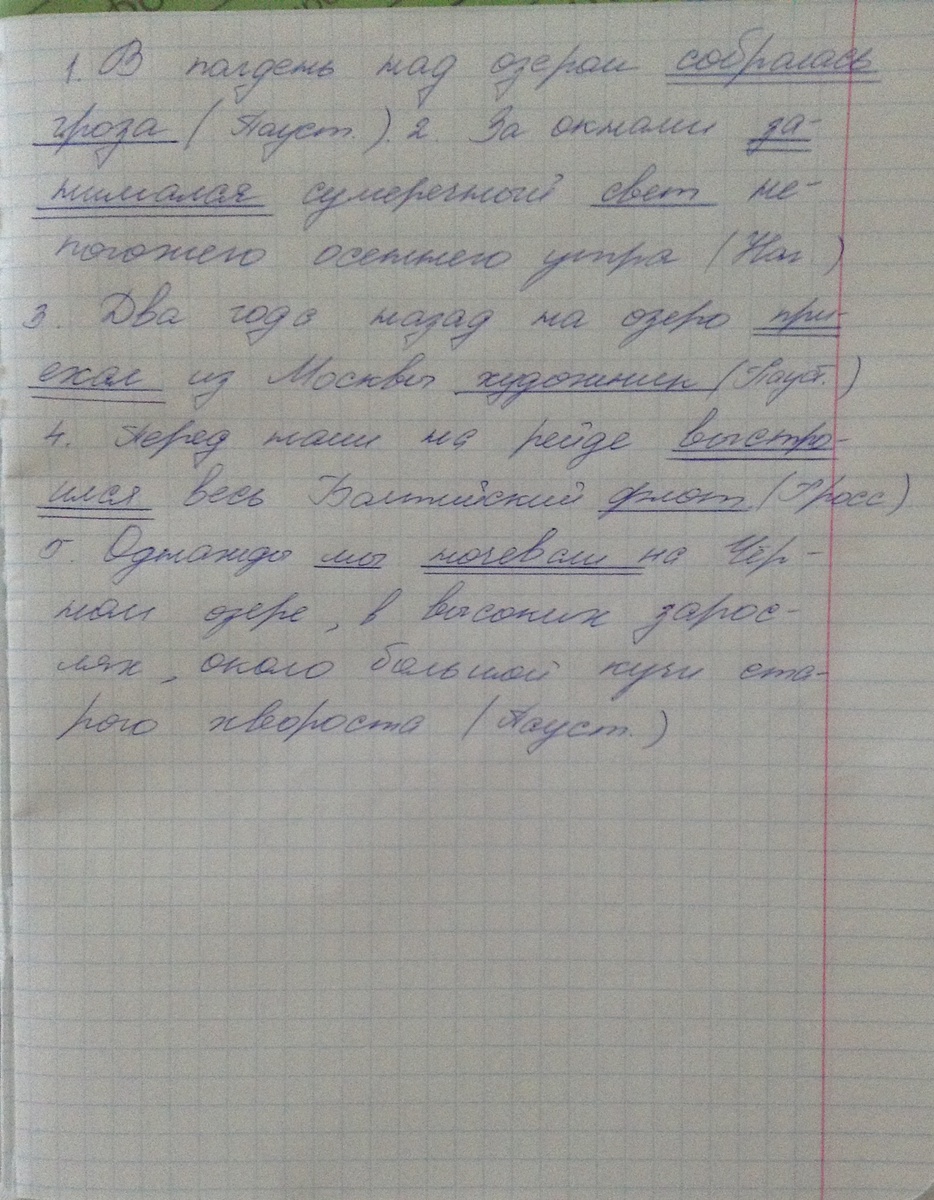 1. В полдень над озером собралась
гроза (Пауст.). 2. За окнами за-
нимался сумеречный свет не-
погожего осеннего утра (Наг.)
3. Два года назад на озеро при-
ехал из Москвы художник (Пауст.)
4. Перед нами на рейде выстро-
ился весь Балтийский флот (Гросс)
5. Однажды мы ночевали на Чёр-
ном озере, в высоких зарос-
лях, около большой кучи ста-
рого хвороста (Пауст.)